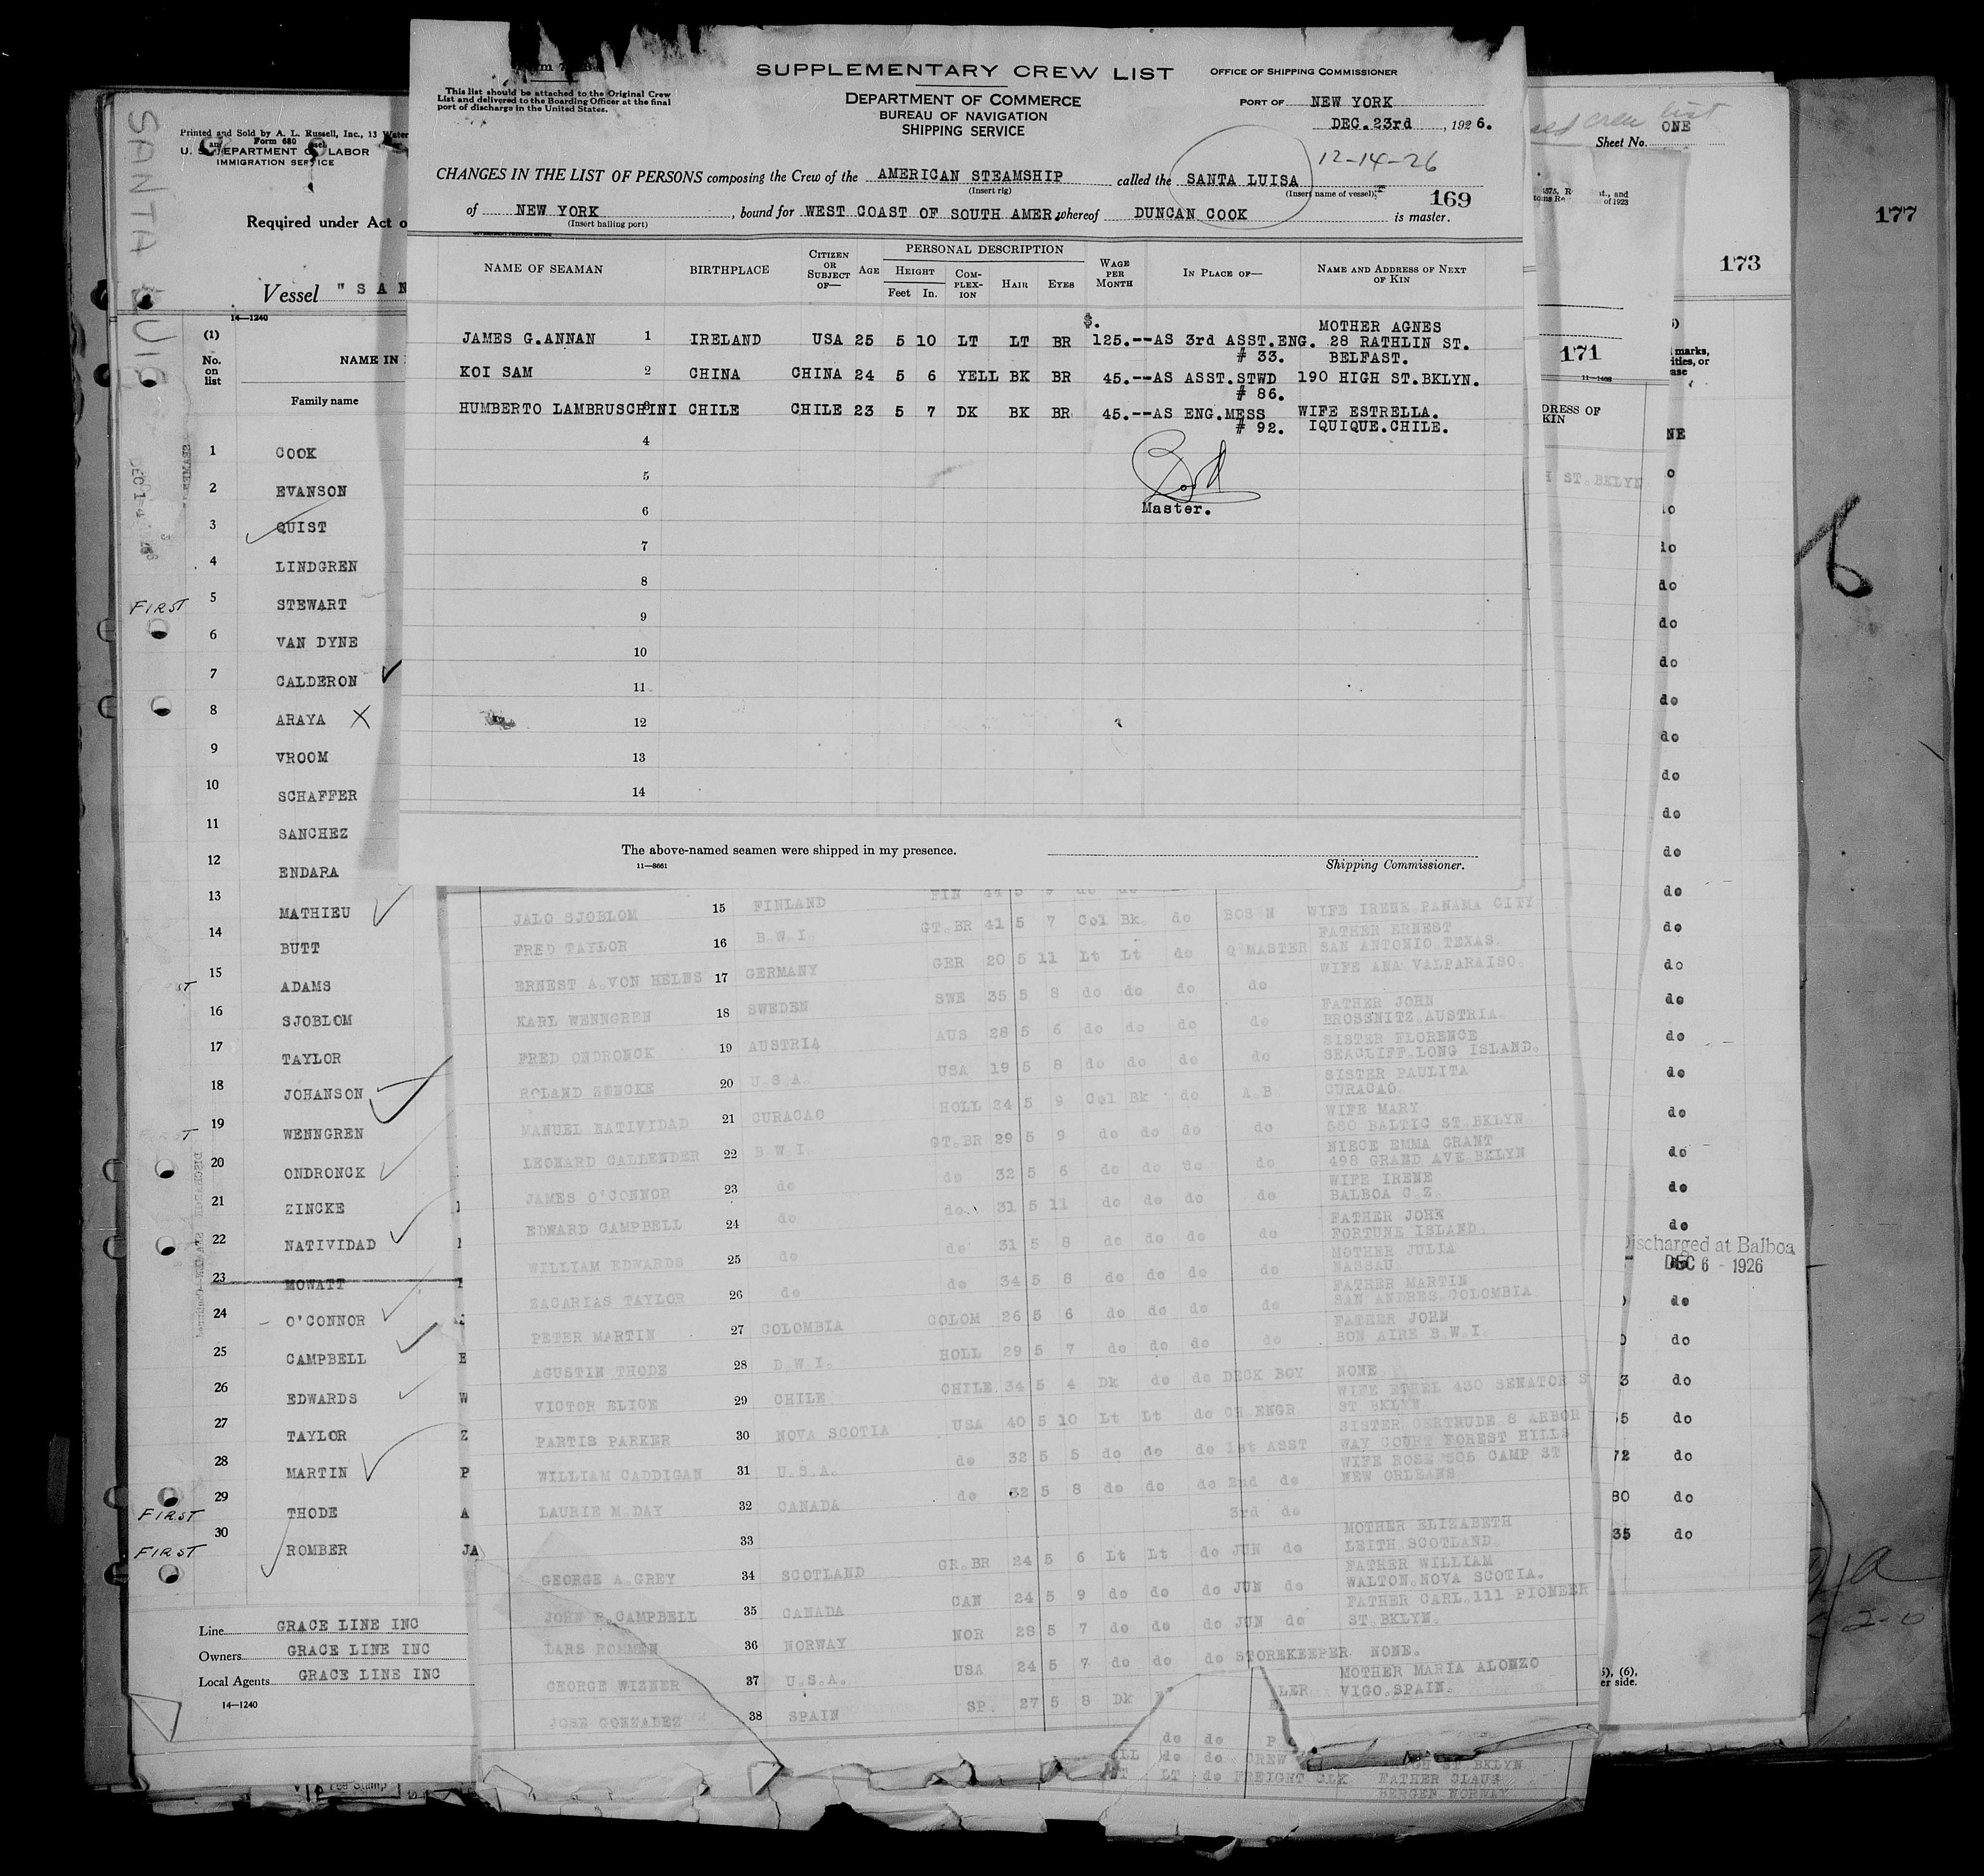 SUPPLEMENTARY CREW LIST
OFFICE OF SHIPPING COMMISSIONER
This list should be attached to the Original Crew
List and delivered to the Boarding Officer at the final
port of discharge in the United States.
DEPARTMENT OF COMMERCE
BUREAU OF NAVIGATION
SHIPPING SERVICE
PORT OF NEW YORK
DEC. 23rd, 1926.
12-14-26
CHANGES IN THE LIST OF PERSONS composing the Crew of the AMERICAN STEAMSHIP called the SANTA LUISA
(Insert rig) (Insert name of vessel)
169
of NEW YORK, bound for WEST COAST OF SOUTH AMER. whereof DUNCAN COOK is master.
(Insert hailing port)
NAME OF SEAMAN BIRTHPLACE CITIZEN OR SUBJECT OF— AGE PERSONAL DESCRIPTION HEIGHT Feet In. COMPLEXION HAIR EYES WAGE PER MONTH IN PLACE OF— NAME AND ADDRESS OF NEXT OF KIN
$. MOTHER AGNES
JAMES G.ANNAN 1 IRELAND USA 25 5 10 LT LT BR 125.--AS 3rd ASST.ENG. 28 RATHLIN ST.
# 33. BELFAST.
KOI SAM 2 CHINA CHINA 24 5 6 YELL BK BR 45.--AS ASST.STWD 190 HIGH ST.BKLYN.
# 86.
HUMBERTO LAMBRUSCHINI 3 CHILE CHILE 23 5 7 DK BK BR 45.--AS ENG.MESS WIFE ESTRELLA.
# 92. IQUIQUE.CHILE.
4
5
6
Master.
7
8
9
10
11
12
13
14
The above-named seamen were shipped in my presence.
11—8661
Shipping Commissioner.
SANTA LUISA
Printed and Sold by A. L. Russell, Inc., 13 Water
Form 680
U. S. DEPARTMENT OF LABOR
IMMIGRATION SERVICE
Required under Act o
Vessel "SAN
14—1240
(1)
No. on list
NAME IN
Family name
1 COOK
2 EVANSON
3 QUIST
4 LINDGREN
FIRST 5 STEWART
6 VAN DYNE
7 CALDERON
8 ARAYA X
9 VROOM
10 SCHAFFER
11 SANCHEZ
12 ENDARA
13 MATHIEU
14 BUTT
15 ADAMS
16 SJOBLOM
17 TAYLOR
18 JOHANSON
19 WENNGREN
20 ONDRONCK
21 ZINCKE
22 NATIVIDAD
23 MOWATT
24 O'CONNOR
25 CAMPBELL
26 EDWARDS
27 TAYLOR
28 MARTIN
FIRST 29 THODE
FIRST 30 ROMBER
Line GRACE LINE INC
Owners GRACE LINE INC
Local Agents GRACE LINE INC
14—1240
JALO SJOBLOM 15 FINLAND FIN 44 5 9 do do
FRED TAYLOR 16 B.W.I. GT.BR 41 5 7 Col Bk do BOS'N WIFE IRENE.PANAMA CITY
ERNEST A.VON HELNS 17 GERMANY GER 20 5 11 Lt Lt do Q'MASTER FATHER ERNEST SAN ANTONIO.TEXAS.
KARL WENNGREN 18 SWEDEN SWE 35 5 8 do do do do WIFE ANA VALPARAISO.
FRED ONDRONCK 19 AUSTRIA AUS 28 5 6 do do do do FATHER JOHN BROSSNITZ.AUSTRIA.
ROLAND ZENCKE 20 U.S.A. USA 19 5 8 do do do do SISTER FLORENCE SEACLIFF.LONG ISLAND.
MANUEL NATIVIDAD 21 CURACAO HOLL 24 5 9 Col Bk do A.B. SISTER PAULITA CURACAO.
LEONARD CALLENDER 22 B.W.I. GT.BR 29 5 9 do do do do WIFE MARY 580 BALTIC ST.BKLYN.
JAMES O'CONNOR 23 do do 32 5 6 do do do do NIECE EMMA GRANT 498 GRAND AVE BKLYN
EDWARD CAMPBELL 24 do do. 31 5 11 do do do do WIFE IRENE BALBOA C.Z.
WILLIAM EDWARDS 25 do do 31 5 8 do do do do FATHER JOHN FORTUNE ISLAND.
ZACARIAS TAYLOR 26 do do 34 5 8 do do do do MOTHER JULIA NASSAU
PETER MARTIN 27 COLOMBIA COLOM 26 5 6 do do do do FATHER MARTIN SAN ANDRES.COLOMBIA
AGUSTIN THODE 28 D.W.I. HOLL 29 5 7 do do do do FATHER JOHN BON AIRE B.W.I.
VICTOR ELICE 29 CHILE CHILE. 34 5 4 Dk do do DECK BOY NONE
PARTIS PARKER 30 NOVA SCOTIA USA 40 5 10 Lt Lt do CH ENGR WIFE ETHEL 430 SENATOR S ST.BKLYN
WILLIAM CADDIGAN 31 U.S.A. do 32 5 5 do do do 1st ASST SISTER GERTRUDE 8 ARBOR WAY COURT FOREST HILLS
LAURIE M.DAY 32 CANADA do 32 5 8 do do do 2nd do WIFE ROSE 505 CAMP ST NEW ORLEANS
33 3rd do
GEORGE A.GREY 34 SCOTLAND GR.BR 24 5 6 Lt Lt do JUN do MOTHER ELIZABETH LEITH SCOTLAND.
JOHN R.CAMPBELL 35 CANADA CAN 24 5 9 do do do JUN do FATHER WILLIAM WALTON.NOVA SCOTIA.
LARS ROMMEN 36 NORWAY NOR 28 5 7 do do do JUN do FATHER CARL.111 PIONEER ST.BKLYN.
GEORGE WIZNER 37 U.S.A. USA 24 5 7 do do do STOREKEEPER NONE.
JOSE GONZADEZ 38 SPAIN SP. 27 5 8 Dk LER MOTHER MARIA ALONZO VIGO.SPAIN.
do do P
do do CREW ST BKLYN
LT do FREIGHT CLK FATHER CLAUS
BERGEN NORWAY
crew list
Sheet No. ONE
177
173
171
11—1408
DRESS OF
KIN
ST.BKLYN
marks,
Discharged at Balboa
DEC 6 - 1926
3 do
35 do
72 do
80 do
35 do
5), (6),
er side.
6